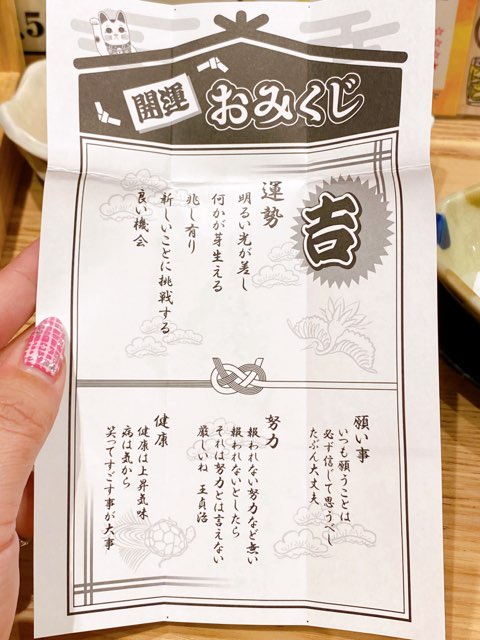 開運
おみくじ
吉
運勢
明るい光が差し
何かが芽生える
兆し有り
新しいことに挑戦する
良い機会
願い事
いつも願うことは
必ず信じて思うべし
たぶん大丈夫
努力
報われない努力など無い
報われないとしたら
それは努力とは言えない
厳しいね 王貞治
健康
健康は上昇気味
病は気から
笑ってすごす事が大事